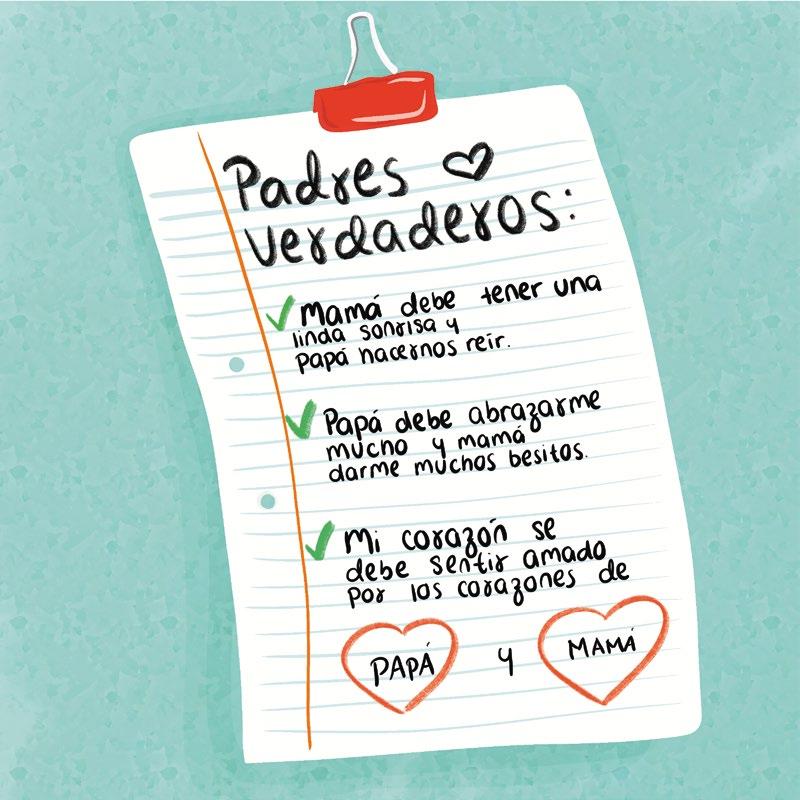 Padres
verdaderos:
Mamá debe tener una
linda sonrisa y
papá hacernos reír.
Papá debe abrazarme
mucho y mamá
darme muchos besitos.
Mi corazón se
debe sentir amado
por los corazones de
PAPÁ y MAMÁ